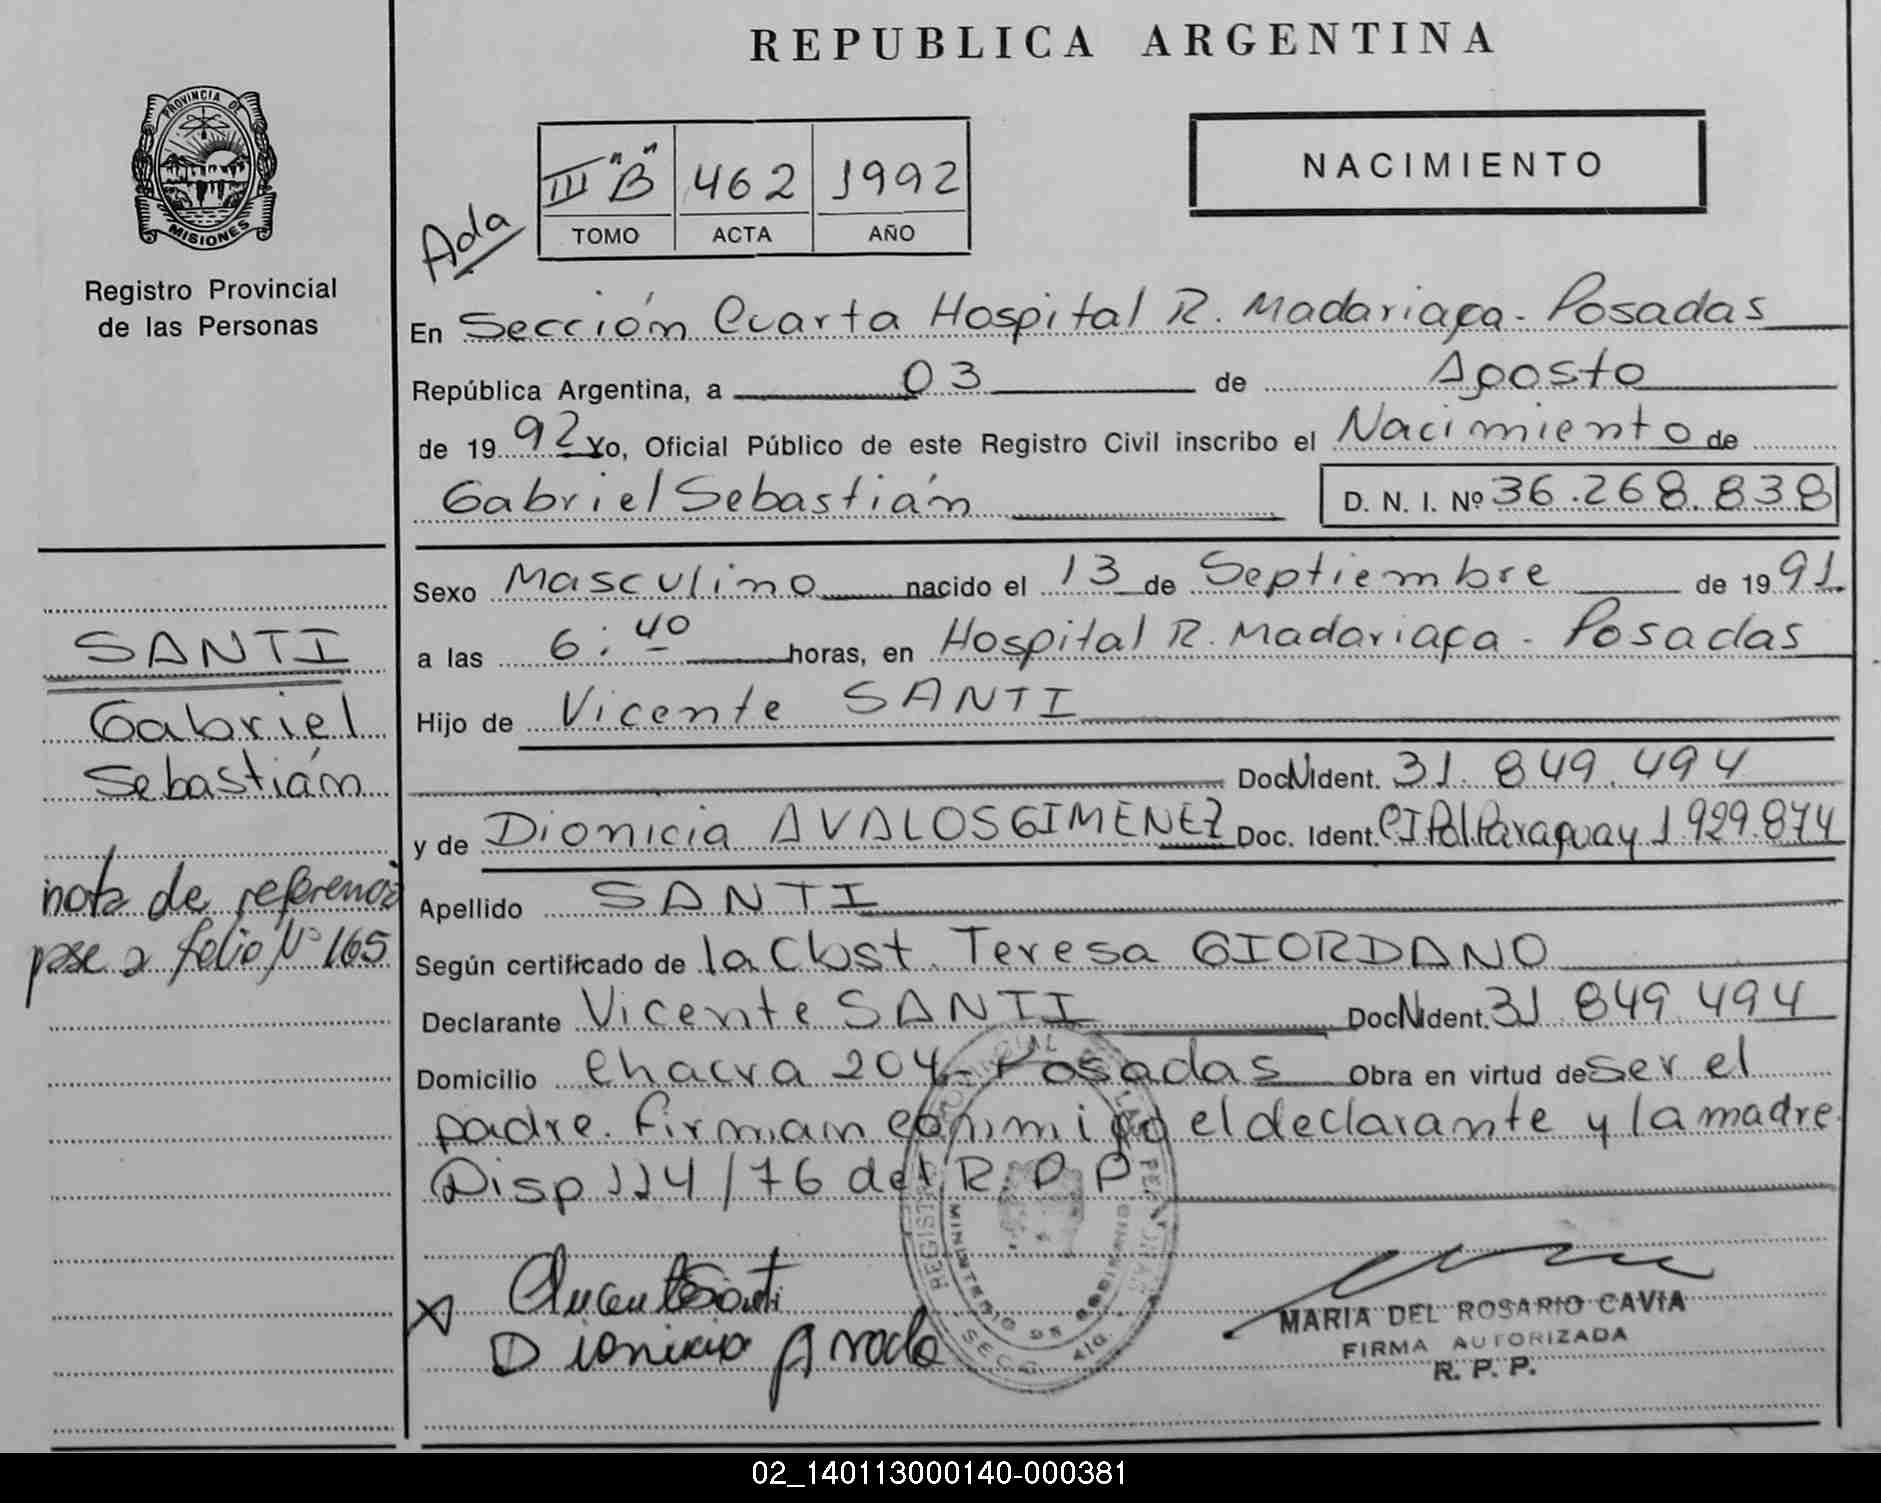 REPUBLICA ARGENTINA
PROVINCIA DE
MISIONES
Registro Provincial
de las Personas
III "B" 462 1992
TOMO ACTA AÑO
Ada
NACIMIENTO
En Sección Cuarta Hospital R. Madariaga - Posadas
República Argentina, a 03 de Agosto
de 19 92 Yo, Oficial Público de este Registro Civil inscribo el Nacimiento de
Gabriel Sebastián D. N. I. Nº 36.268.838
Sexo Masculino nacido el 13 de Septiembre de 19 91
a las 6:40 horas, en Hospital R. Madariaga - Posadas
Hijo de Vicente SANTI
Doc N Ident. 31.849.494
y de Dionicia AVALOS GIMENEZ Doc. Ident. CI Pol. Paraguay 1.929.874
Apellido SANTI
Según certificado de la Obst. Teresa GIORDANO
Declarante Vicente SANTI Doc N Ident. 31.849.494
Domicilio Chacra 204 - Posadas Obra en virtud de ser el
padre. Firman conmigo el declarante y la madre.
Disp 114/76 del R.P.P.
SANTI
Gabriel
Sebastián
nota de referencia
pase a folio Nº 165
Dionicia
MINISTERIO DE GOBIERNO
MARIA DEL ROSARIO CAVIA
FIRMA AUTORIZADA
R. P. P.
02_140113000140-000381